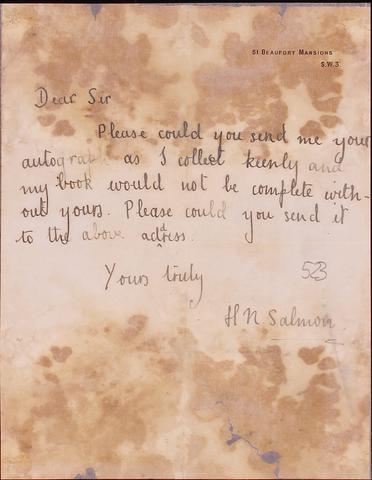 51 BEAUFORT MANSIONS
S.W.3.
Dear Sir
Please could you send me your
autograph as I collect keenly and
my book would not be complete with-
out yours. Please could you send it
to the above adress.
d
Yours truly
523
H N Salmon